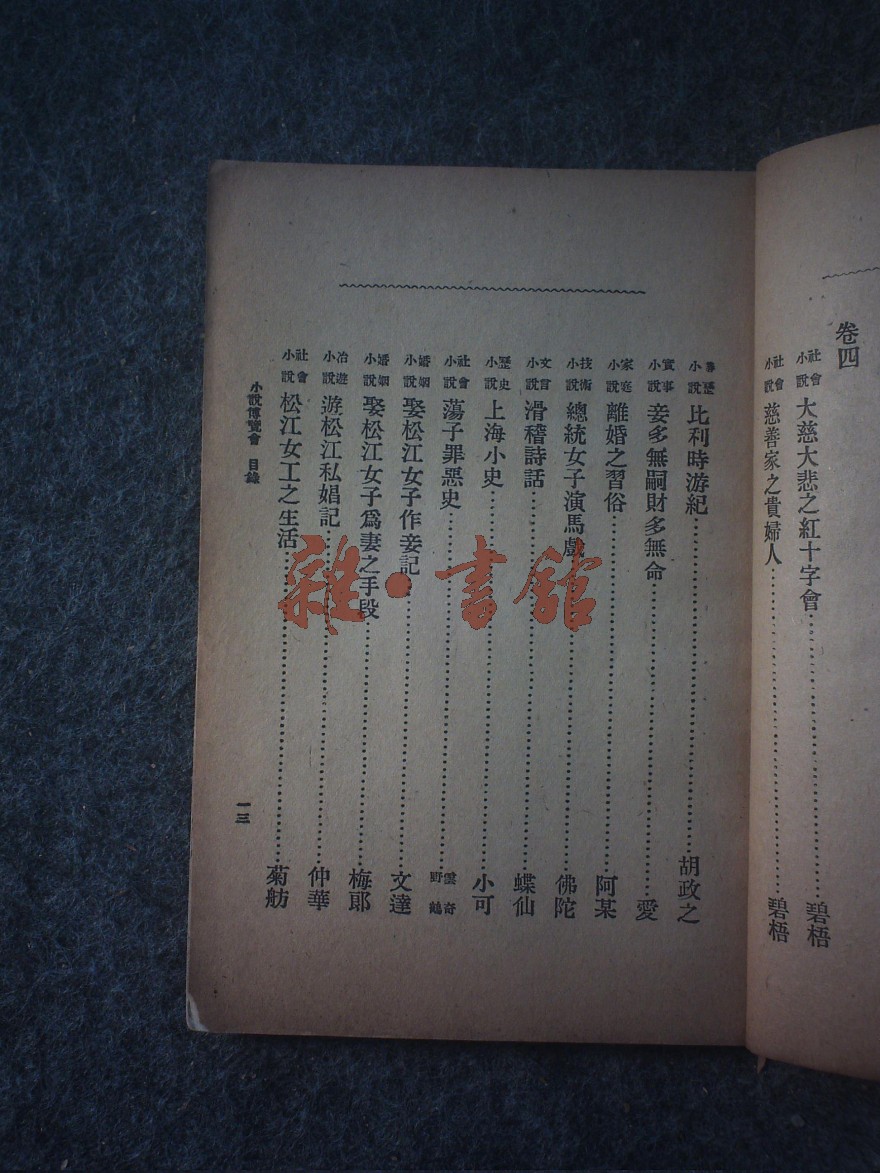 卷四
社會小說 大慈大悲之紅十字會 碧梧
社會小說 慈善家之貴婦人 碧梧
小說 比利時游紀 胡政之
實事小說 妾多無嗣財多無命 愛
家庭小說 離婚之習俗 阿某
技術小說 總統女子演馬戲 佛陀
文言小說 滑稽詩話 蝶仙
歷史小說 上海小史 小可
社會小說 蕩子罪惡史 雲奇 野鶴
婚姻小說 娶松江女子作妾記 文達
婚姻小說 娶松江女子爲妻之手段 梅郎
冶遊小說 游松江私娼記 仲華
社會小說 松江女工之生活 菊舫
小說博覽會 目錄
一三
雜·書館